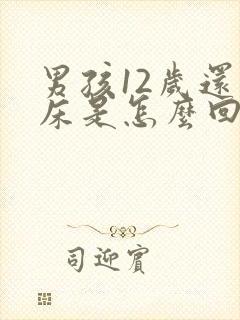 男孩12歲還
床是怎麼回
司迎賓